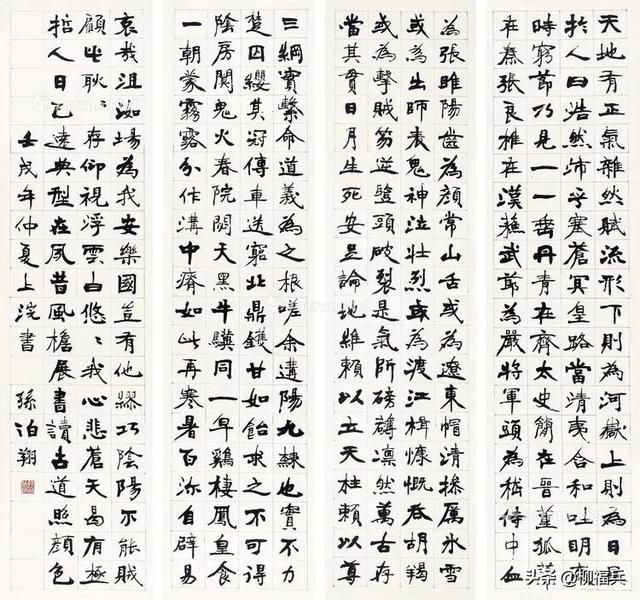 天地有正氣雜然賦流形下則為河嶽上則為日星
於人曰浩然沛乎塞蒼冥皇路當清夷含和吐明庭
時窮節乃見一一垂丹青在齊太史簡在晉董狐筆
在秦張良椎在漢蘇武節為嚴將軍頭為嵇侍中血
為張睢陽齒為顏常山舌或為遼東帽清操厲冰雪
或為出師表鬼神泣壯烈或為渡江楫慷慨吞胡羯
或為擊賊笏逆豎頭破裂是氣所磅礴凜然萬古存
當其貫日月生死安足論地維賴以立天柱賴以尊
三綱實繫命道義為之根嗟余遘陽九隸也實不力
楚囚纓其冠傳車送窮北鼎鑊甘如飴求之不可得
陰房闃鬼火春院閟天黑牛驥同一皁鷄棲鳳皇食
一朝蒙霧露分作溝中瘠如此再寒暑百沴自辟易
哀哉沮洳場為我安樂國豈有他繆巧陰陽不能賊
顧此耿〻存仰視浮雲白悠〻我心悲蒼天曷有極
哲人日已遠典型在夙昔風檐展書讀古道照顏色
壬戌年仲夏上浣書 孫伯翔
头条 @柳福兵